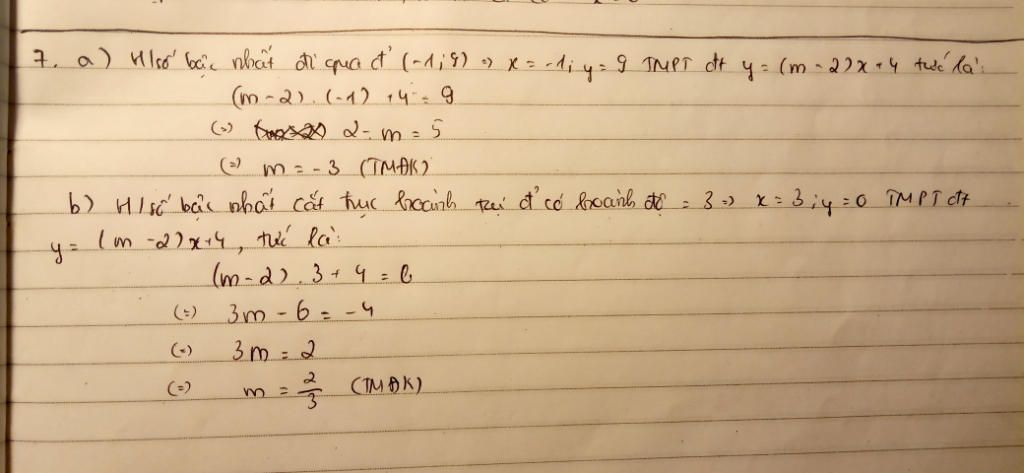 7. a) H/số bậc nhất đi qua đ' (-1; 9) => x = -1; y = 9 TMPT đt y = (m - 2)x + 4 tức là:
(m - 2). (-1) + 4 = 9
(=) 2 - m = 5
(=) m = -3 (TMĐK)
b) H/số bậc nhất cắt trục hoành tại đ' có hoành độ = 3 => x = 3; y = 0 TMPT đt
y = (m - 2)x + 4, tức là:
(m - 2). 3 + 4 = 0
(=) 3m - 6 = -4
(=) 3m = 2
(=) m = 2/3 (TMĐK)